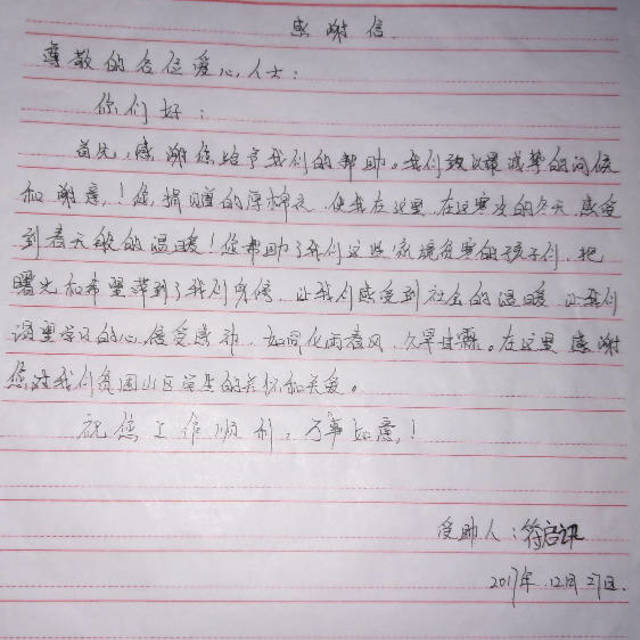 感谢信
尊敬的各位爱心人士：
你们好：
首先，感谢您给予我们的帮助。我们致以最诚挚的问候
和谢意！您捐赠的厚棉衣，使我在这里，在这寒冷的冬天，感受
到春天般的温暖！您帮助了我们这些家境贫寒的孩子们，把
曙光和希望带到了我们身傍，让我们感受到社会的温暖，让我们
渴望学习的心，倍受感动，如同化雨春风，久旱甘霖。在这里感谢
您对我们贫困山区学生的关怀和关爱。
祝您工作顺利，万事如意！
受助人：符启讯
2017年12月27日.